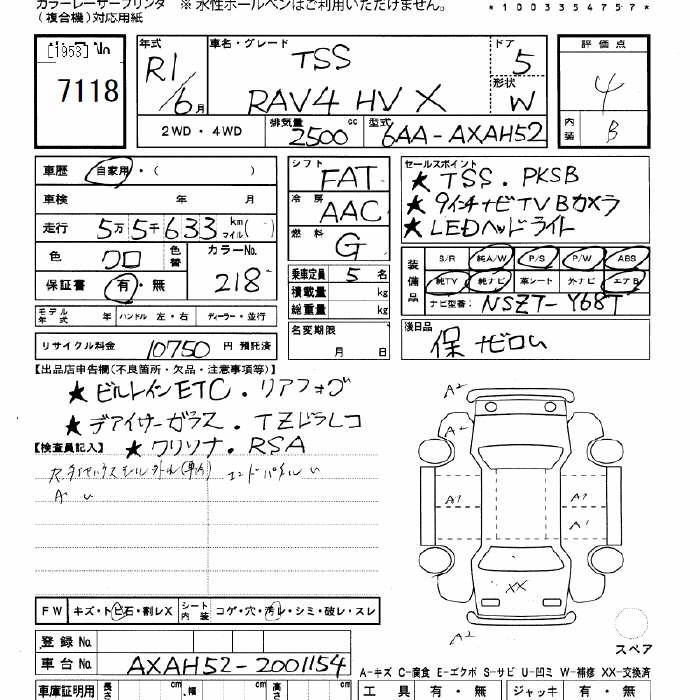 カラーレーザープリンタ ※ 水性ボールペンはご利用いただけません。
(複合機)対応用紙 *1003354757*
[1953] No 年式 車名・グレード ドア 評価点
7118 R1/6月 TSS 5 4
RAV4 HV X 形状 W
2WD・4WD 排気量 2500 cc 型式 6AA-AXAH52 内装 B
車歴 自家用・( ) シフト FAT セールスポイント
★TSS. PKSB
車検 年 月 冷房 AAC ★9インチナビTVBカメラ
走行 5万5千633 km マイル( ) 燃料 G ★LEDヘッドライト
色 クロ 色替 カラーNo. 218 乗車定員 5名 装備品 S/R 純A/W P/S P/W ABS
保証書 有・無 積載量 kg 純TY 純ナビ 革シート 外ナビ エアB
総重量 kg ナビ型番: NSZT-Y68T
モデル年式 年 ハンドル 左・右 ディーラー・並行 名変期限 月 日 後日品
リサイクル料金 10750円 預託済 保
【出品店申告欄(不良箇所・欠品・注意事項等)】
★ビルトインETC. リアフォグ
★デアイサーガラス. TZドラレコ
【検査員記入】 ★クリソナ. RSA
A2
A2
A1 A1
A1
XX
A2
FW キズ・トビ石・割レX シート内装 コゲ・穴・汚レ・シミ・破レ・スレ
登録No. スペア
車台No. AXAH52-2001154
A-キズ C-腐食 E-エクボ S-サビ U-凹ミ W-補修 XX-交換済
車庫証明用 長さ cm 幅 cm 高さ cm 工具 有・無 ジャッキ 有・無